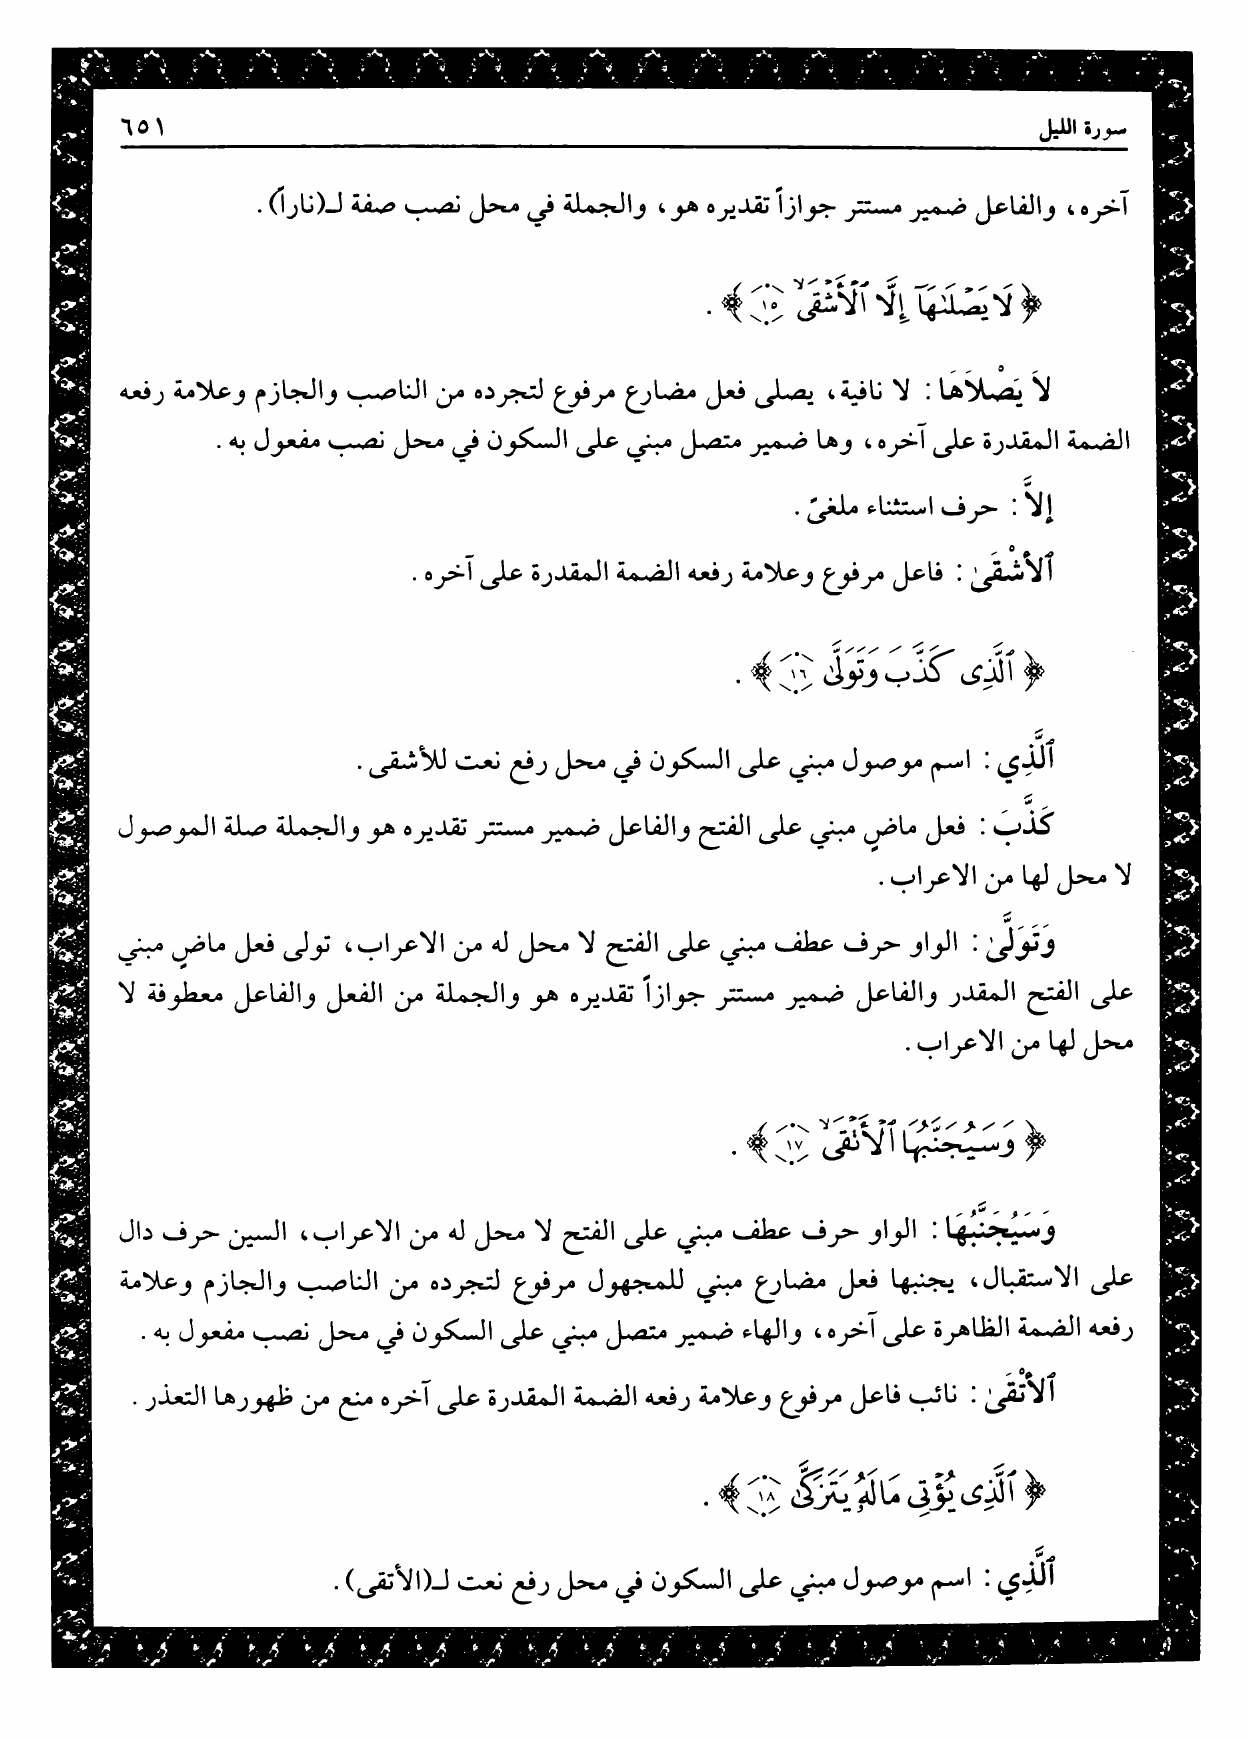 سورة الليل ٦٥١
آخره، والفاعل ضمير مستتر جوازاً تقديره هو، والجملة في محل نصب صفة لـ(ناراً).
﴿ لَا يَصْلَىٰهَآ إِلَّا ٱلْأَشْقَى ١٥ ﴾.
لاَ يَصْلاَهَا: لا نافية، يصلى فعل مضارع مرفوع لتجرده من الناصب والجازم وعلامة رفعه
الضمة المقدرة على آخره، وها ضمير متصل مبني على السكون في محل نصب مفعول به.
إلاَّ: حرف استثناء ملغىً.
ٱلأَشْقَىٰ: فاعل مرفوع وعلامة رفعه الضمة المقدرة على آخره.
﴿ ٱلَّذِى كَذَّبَ وَتَوَلَّىٰ ١٦ ﴾.
ٱلَّذِي: اسم موصول مبني على السكون في محل رفع نعت للأشقى.
كَذَّبَ: فعل ماضٍ مبني على الفتح والفاعل ضمير مستتر تقديره هو والجملة صلة الموصول
لا محل لها من الاعراب.
وَتَوَلَّىٰ: الواو حرف عطف مبني على الفتح لا محل له من الاعراب، تولى فعل ماضٍ مبني
على الفتح المقدر والفاعل ضمير مستتر جوازاً تقديره هو والجملة من الفعل والفاعل معطوفة لا
محل لها من الاعراب.
﴿ وَسَيُجَنَّبُهَا ٱلْأَتْقَى ١٧ ﴾.
وَسَيُجَنَّبُهَا: الواو حرف عطف مبني على الفتح لا محل له من الاعراب، السين حرف دال
على الاستقبال، يجنبها فعل مضارع مبني للمجهول مرفوع لتجرده من الناصب والجازم وعلامة
رفعه الضمة الظاهرة على آخره، والهاء ضمير متصل مبني على السكون في محل نصب مفعول به.
ٱلأَتْقَىٰ: نائب فاعل مرفوع وعلامة رفعه الضمة المقدرة على آخره منع من ظهورها التعذر.
﴿ ٱلَّذِى يُؤْتِى مَالَهُۥ يَتَزَكَّىٰ ١٨ ﴾.
ٱلَّذِي: اسم موصول مبني على السكون في محل رفع نعت لـ(الأتقى).